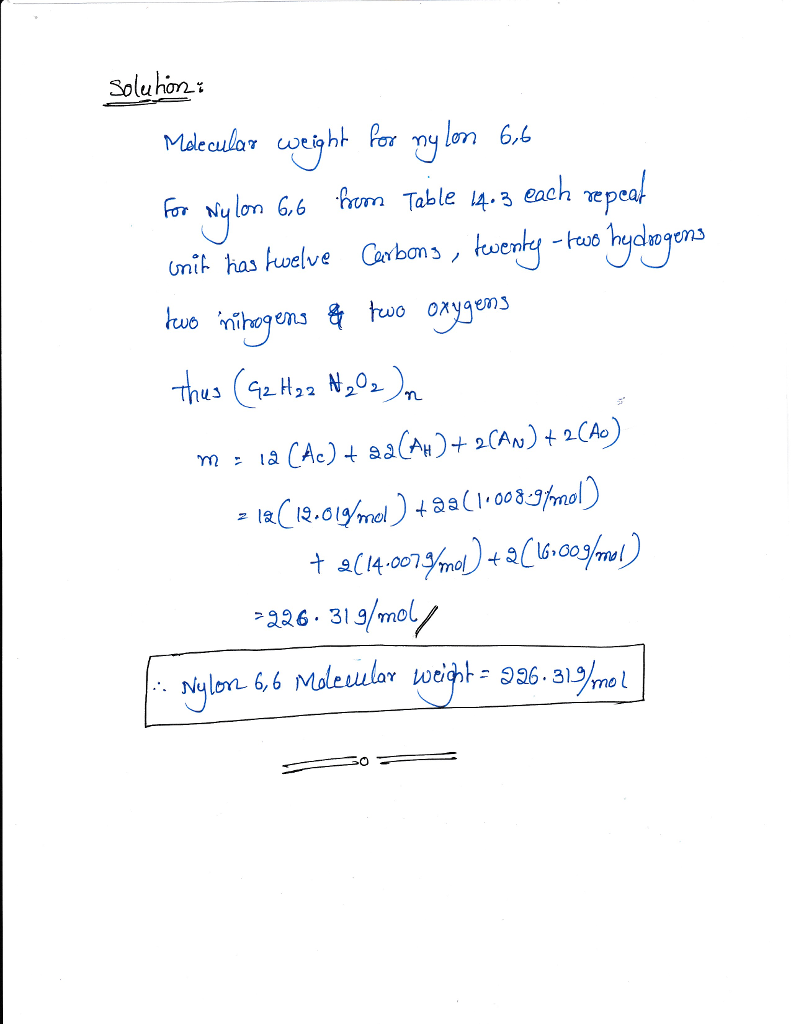 Solution:
Molecular weight for nylon 6,6
For Nylon 6,6 from Table 14.3 each repeat
unit has twelve Carbons, twenty-two hydrogens
two nitrogens & two oxygens
Thus (C12 H22 N2O2)n
m = 12 (AC) + 22(AH) + 2(AN) + 2(AO)
= 12(12.01g/mol) + 22(1.008.g/mol)
+ 2(14.007g/mol) + 2(16.00g/mol)
=226.31g/mol
∴ Nylon 6,6 Molecular weight = 226.31g/mol